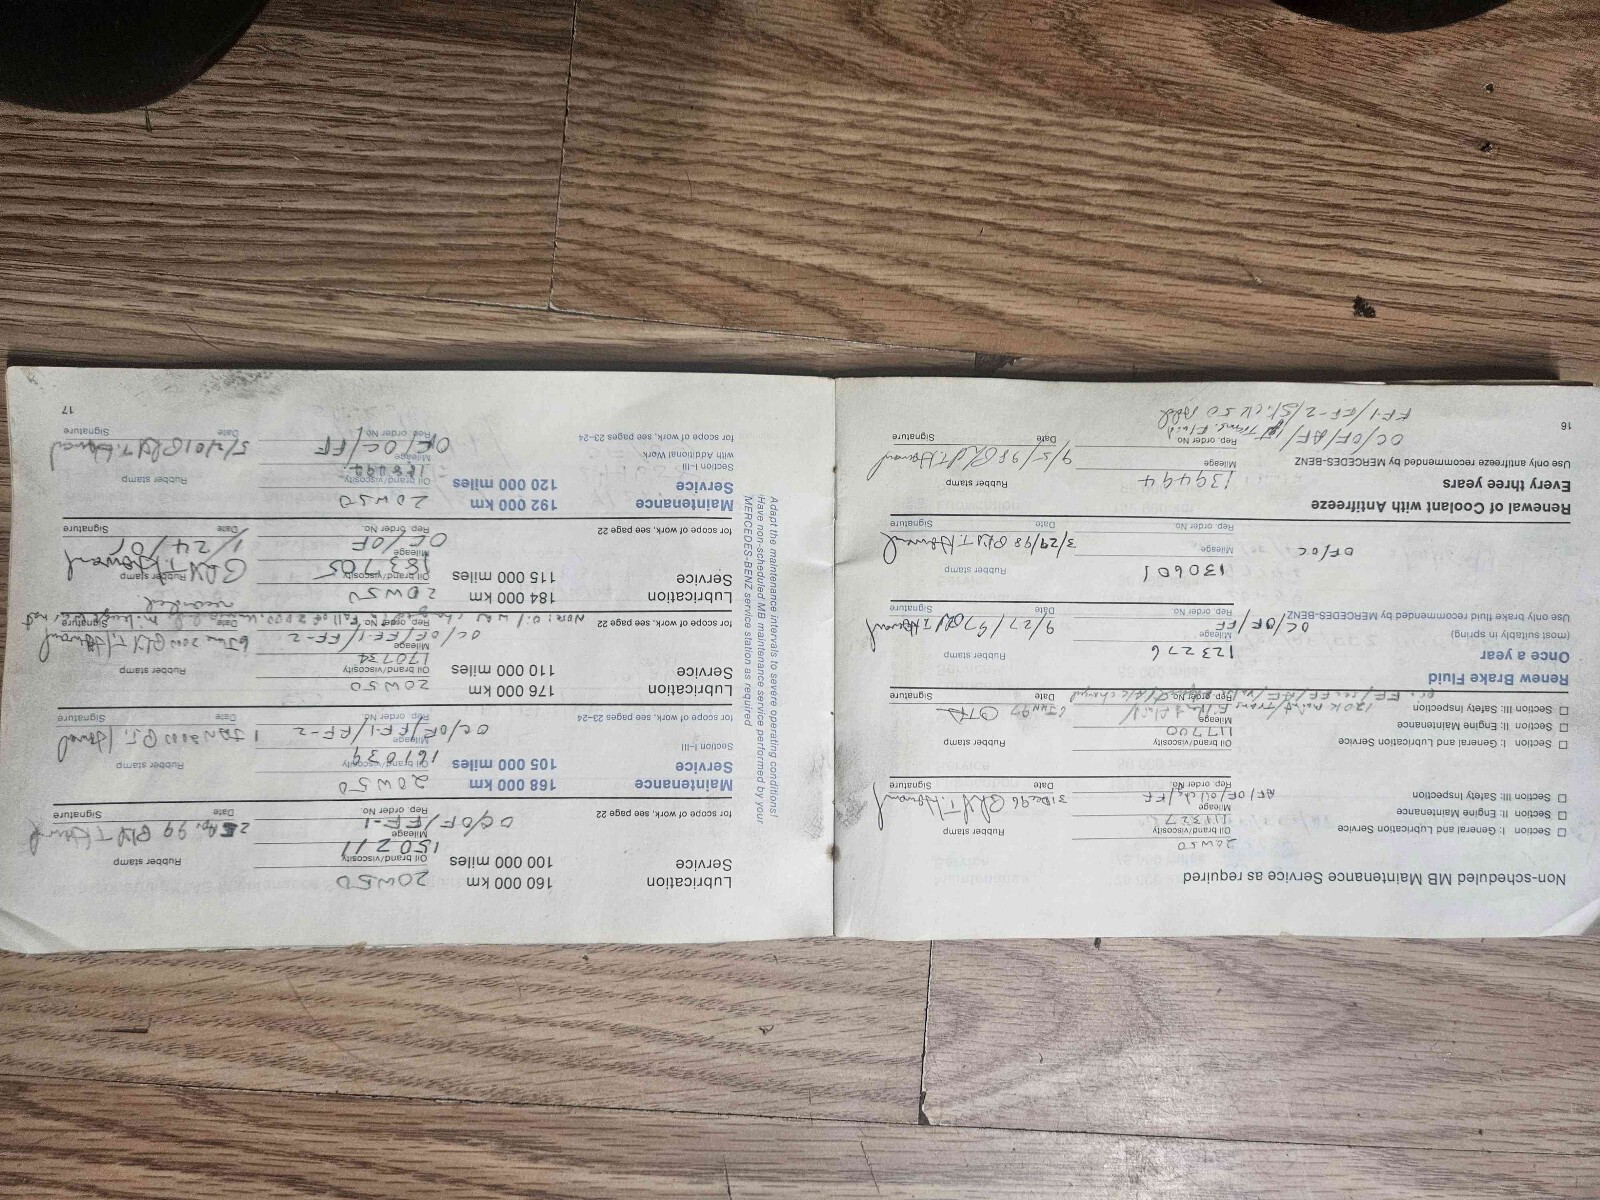 Non-scheduled MB Maintenance Service as required
20W50
☐ Section I: General and Lubrication Service
Oil brand/viscosity
111327
☐ Section II: Engine Maintenance
Mileage
☐ Section III: Safety Inspection
AF/OF/oil ch/FF
Rep. order No.
Rubber stamp
31 Dec 96
Date
Signature
☐ Section I: General and Lubrication Service
Oil brand/viscosity
117700
☐ Section II: Engine Maintenance
Mileage
☐ Section III: Safety Inspection
Rep. order No.
Rubber stamp
6 JUN 97
Date
Signature
Renew Brake Fluid
Once a year
(most suitably in spring)
Use only brake fluid recommended by MERCEDES-BENZ
123276
Mileage
OC/OF/FF
Rep. order No.
Rubber stamp
9/27/97
Date
Signature
130601
Mileage
OF/OC
Rep. order No.
Rubber stamp
3/29/98
Date
Signature
Renewal of Coolant with Antifreeze
Every three years
Use only antifreeze recommended by MERCEDES-BENZ
139494
Mileage
Rep. order No.
OC/OF/AF/ Trans. Fluid
FF-1/FF-2/ 50
Rubber stamp
9/5/98
Date
Signature
16
Lubrication 160 000 km
Service 100 000 miles
for scope of work, see page 22
20W50
Oil brand/viscosity
150211
Mileage
OC/OF/FF-1
Rep. order No.
Rubber stamp
25 Apr. 99
Date
Signature
Maintenance 168 000 km
Service 105 000 miles
Section I-III
for scope of work, see pages 23-24
20W50
Oil brand/viscosity
161039
Mileage
OC/OF/FF-1/FF-2
Rep. order No.
Rubber stamp
1 JAN 2000
Date
Signature
Lubrication 176 000 km
Service 110 000 miles
for scope of work, see page 22
20W50
Oil brand/viscosity
170734
Mileage
OC/OF/FF-1/FF-2
Rep. order No.
Rubber stamp
6 June 2000
Date
Signature
NOTE: Oil was changed in Fall of 2000. mileage was not recorded
Lubrication 184 000 km
Service 115 000 miles
for scope of work, see page 22
20W50
Oil brand/viscosity
183705
Mileage
OC/OF
Rep. order No.
Rubber stamp
1/24/01
Date
Signature
Maintenance 192 000 km
Service 120 000 miles
Section I-III
with Additional Work
for scope of work, see pages 23-24
20W50
Oil brand/viscosity
Mileage
OF/OC/FF
Rep. order No.
Rubber stamp
Date
Signature
17
Adapt the maintenance intervals to severe operating conditions!
Have non-scheduled MB maintenance service performed by your
MERCEDES-BENZ service station as required